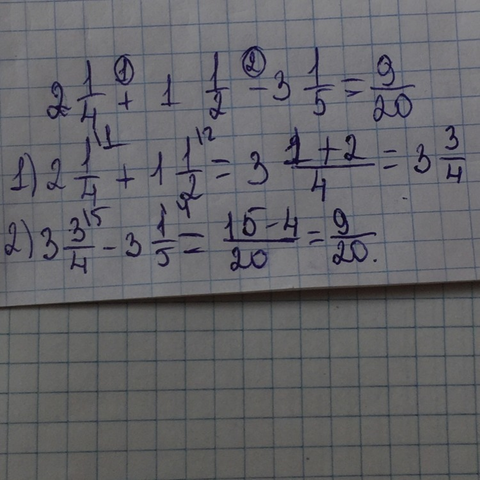 2 1/4 +① 1 1/2 -② 3 1/5 = 9/20
1) 2 1/4 \1 + 1 1/2 \2 = 3 (1+2)/4 = 3 3/4
2) 3 3/4 \5 - 3 1/5 \4 = (15-4)/20 = 9/20.